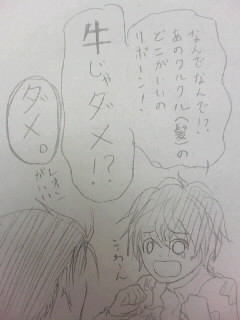 なんでなんで!?
あのクルクル(髪)の
どこがいーの
リボーン!
牛じゃダメ!?
ダメ。
レオン
がいい
うわーん